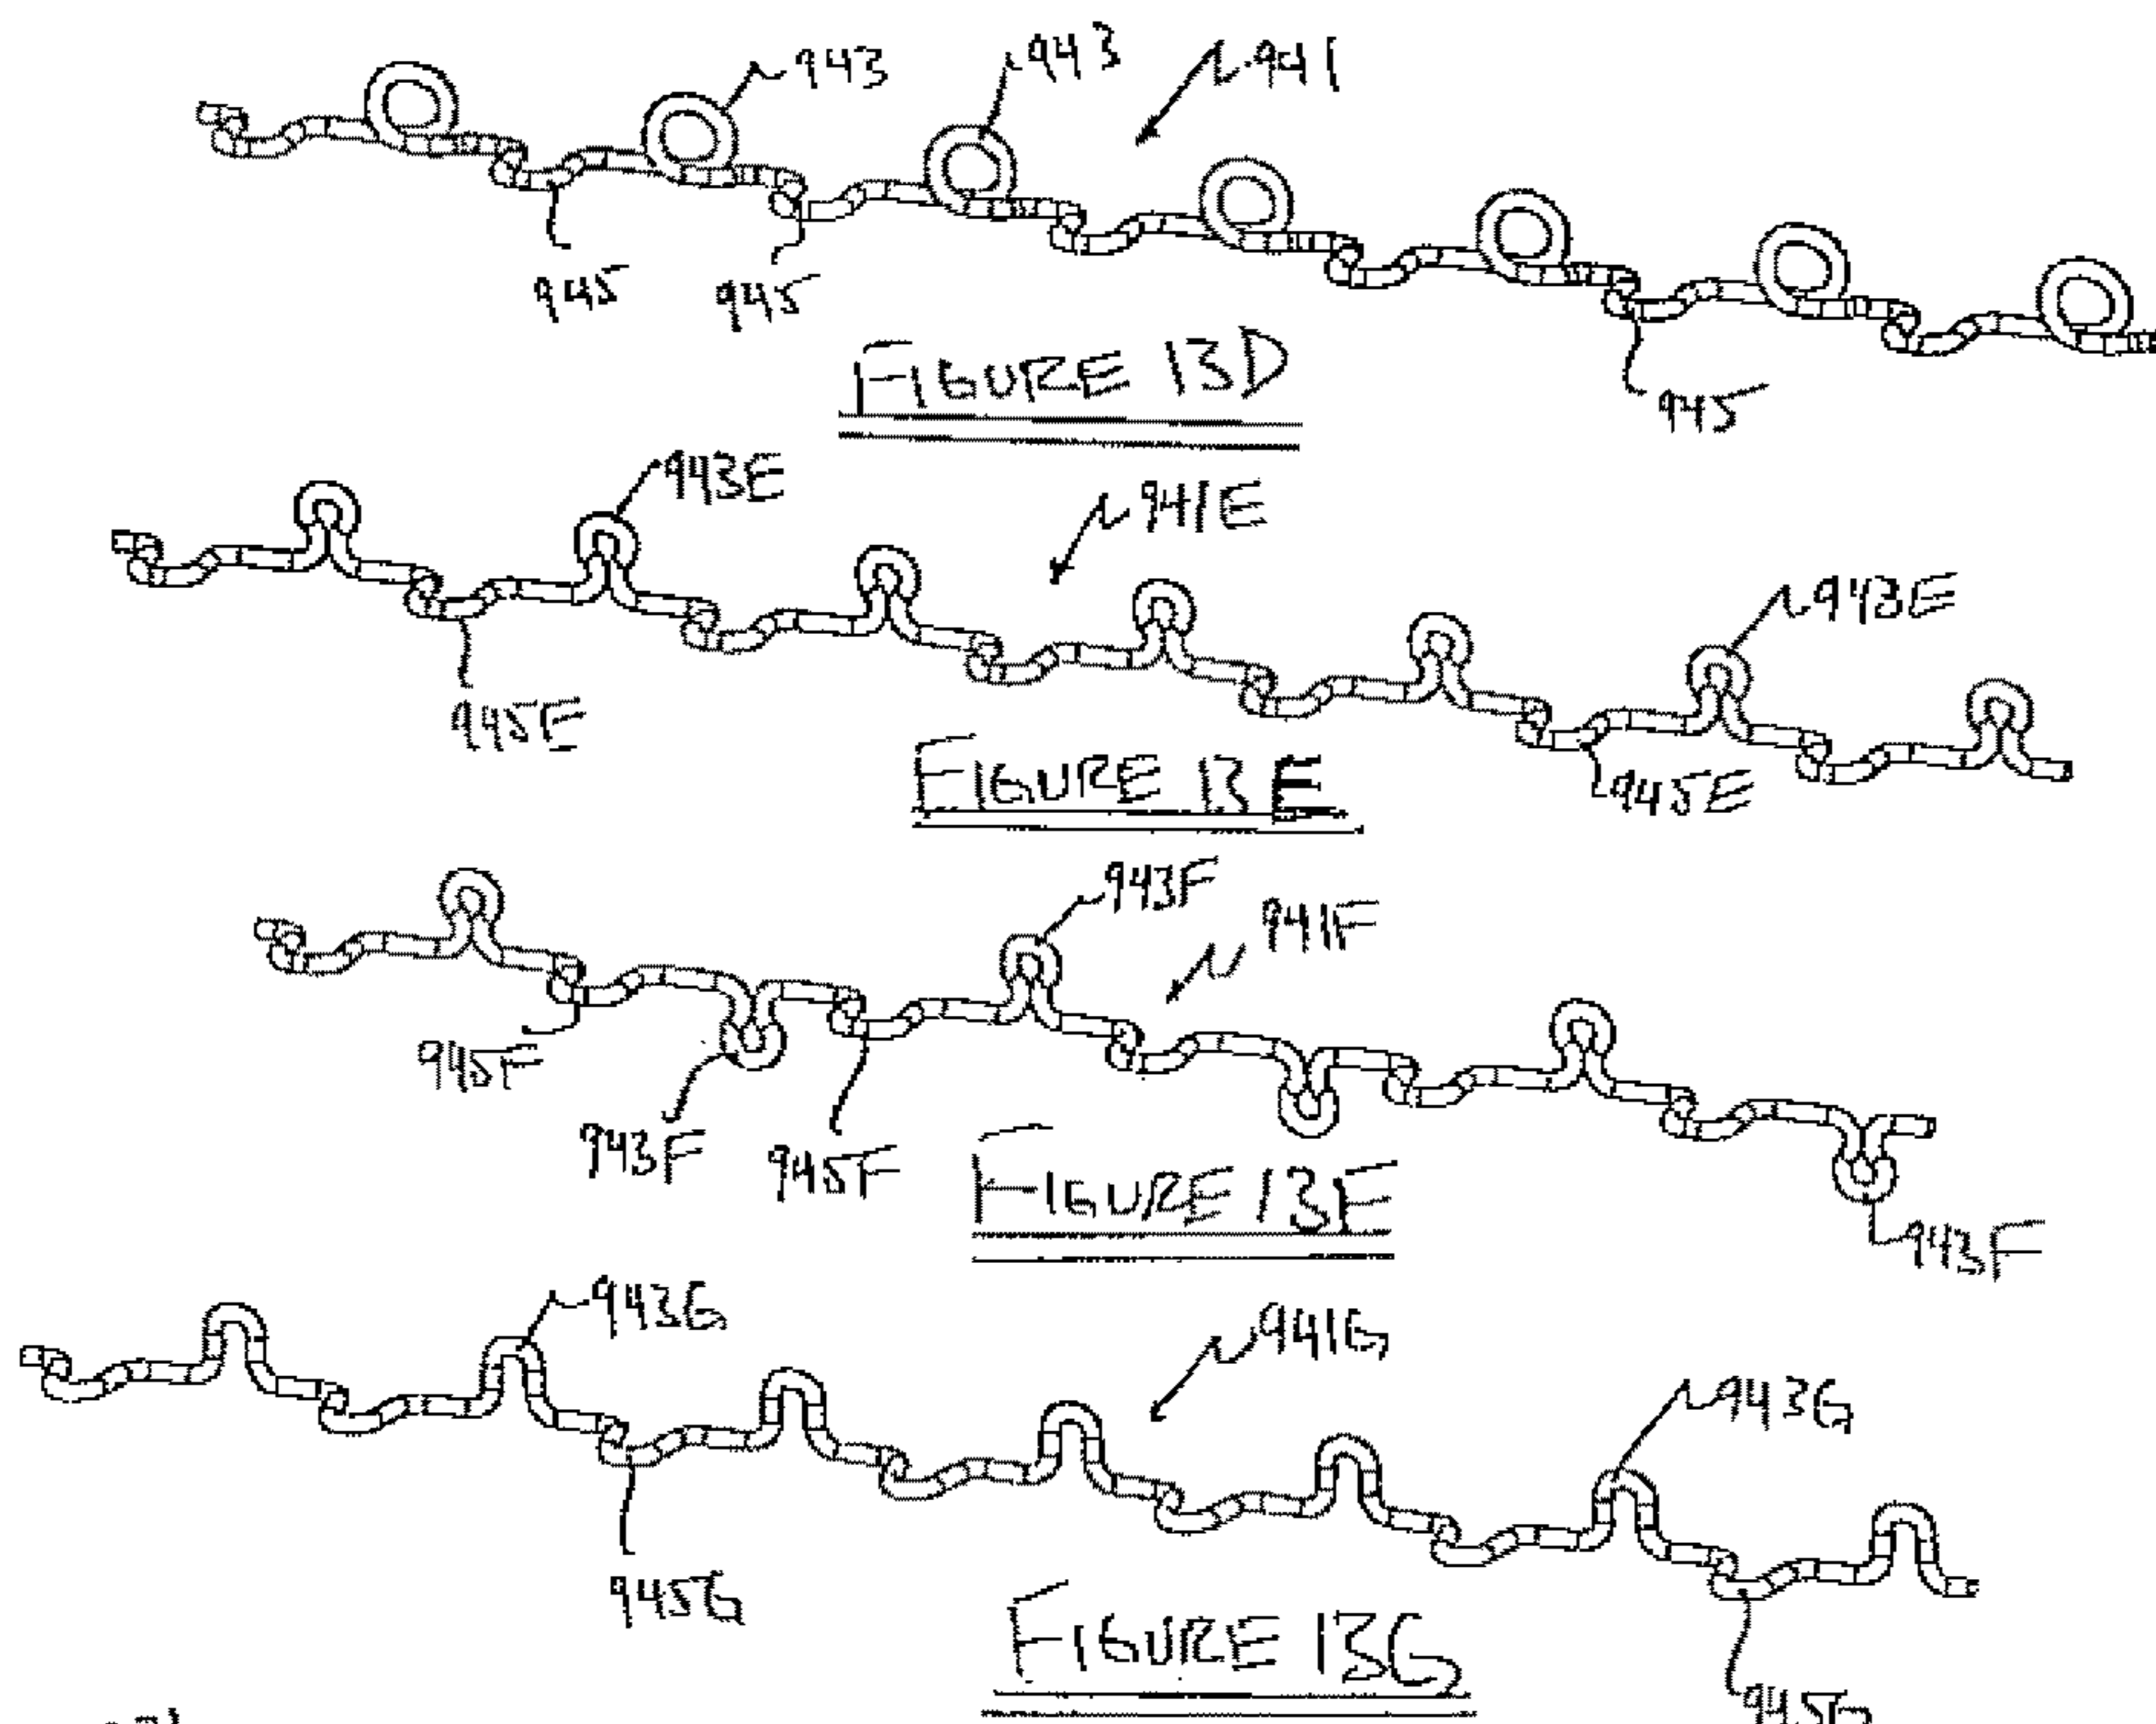 943
943
941
945
945
945
FIGURE 13D
943E
941E
943E
945E
945E
FIGURE 13E
943F
941F
945F
943F
945F
943F
FIGURE 13F
943G
941G
943G
945G
FIGURE 13G
945G